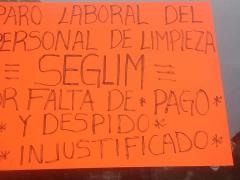 PARO LABORAL DEL
PERSONAL DE LIMPIEZA
= SEGLIM =
OR FALTA DE * PAGO *
* Y DESPIDO *
* INJUSTIFICADO *